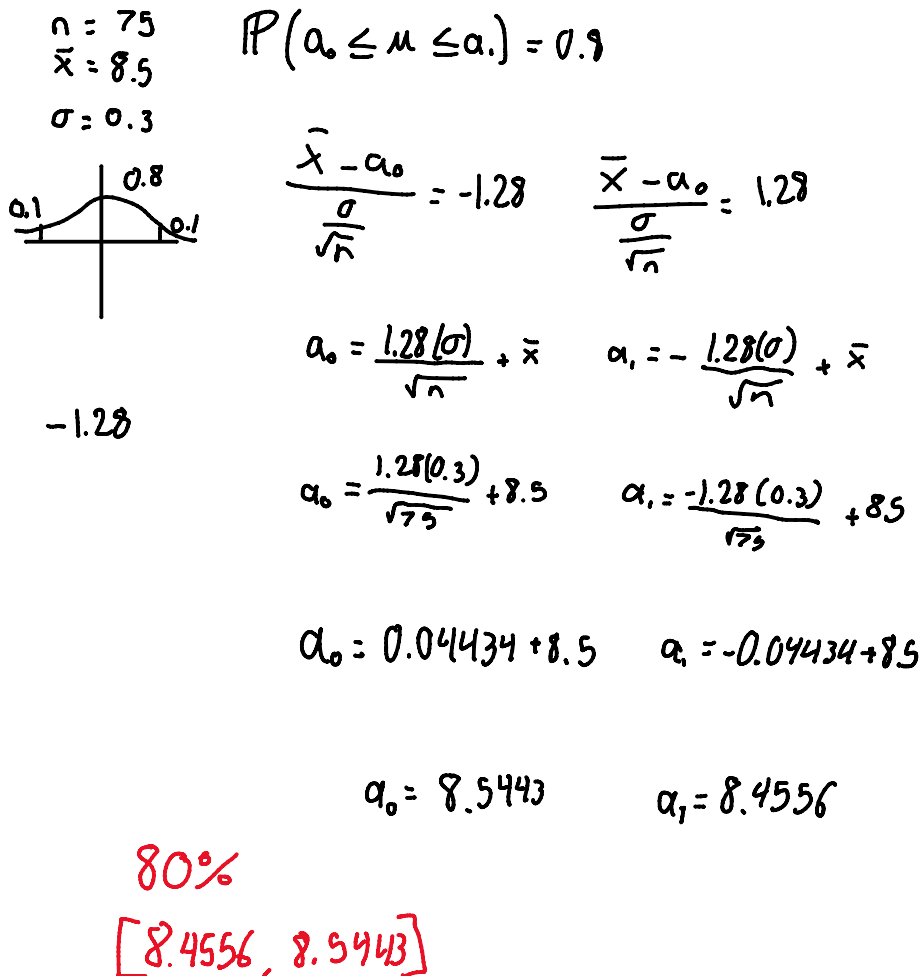 n = 75
x̄ = 8.5
σ = 0.3
ℙ(a₀ ≤ μ ≤ a₁) = 0.8
0.1 0.8 0.1
(x̄ - a₀)/(σ/√n) = -1.28 (x̄ - a₀)/(σ/√n) = 1.28
a₀ = 1.28(σ)/√n + x̄ a₁ = - 1.28(σ)/√n + x̄
-1.28
a₀ = 1.28(0.3)/√75 + 8.5 a₁ = -1.28(0.3)/√75 + 8.5
a₀ = 0.04434 + 8.5 a₁ = -0.04434 + 8.5
a₀ = 8.5443 a₁ = 8.4556
80%
[8.4556, 8.5443]